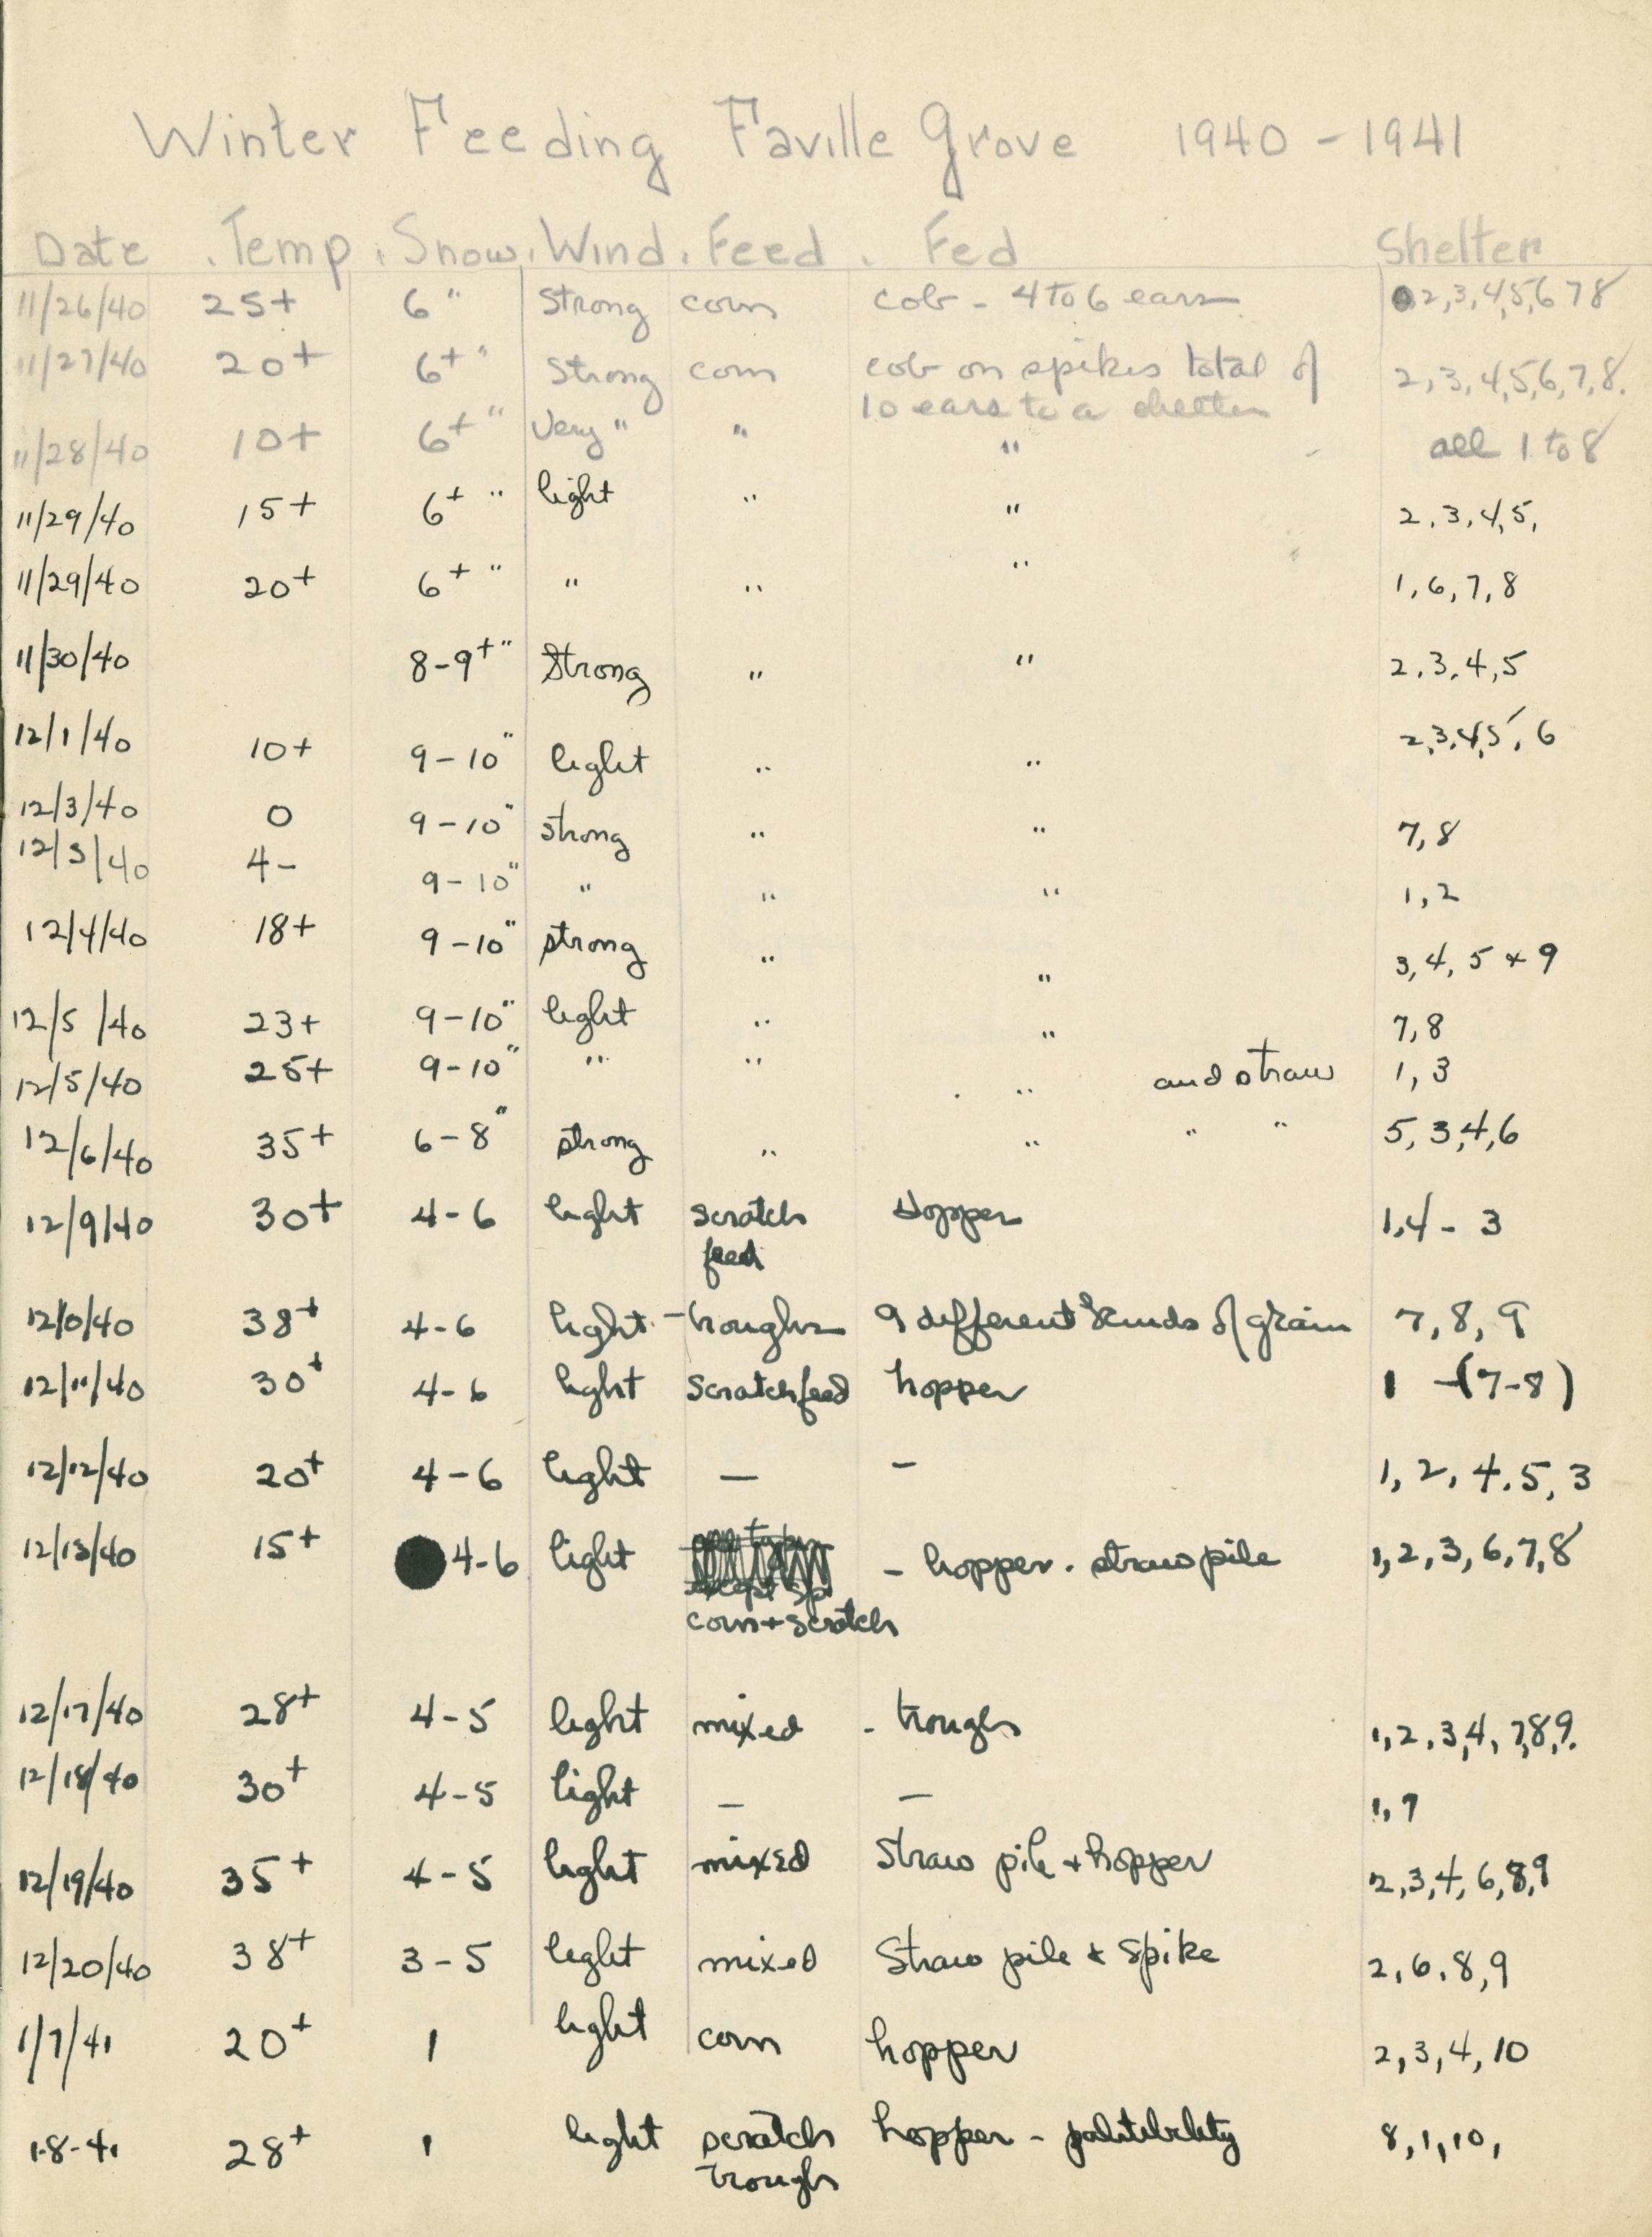 Winter Feeding Faville Grove 1940 - 1941
Date . Temp . Snow . Wind . Feed . Fed Shelter
11/26/40 25+ 6" Strong corn cob - 4 to 6 ears 2,3,4,5,6 7 8
11/27/40 20+ 6+" Strong corn cob on spikes total of 2,3,4,5,6,7,8.
10 ears to a shelter
11/28/40 10+ 6+" Very " " " all 1 to 8
11/29/40 15+ 6+" light " " 2,3,4,5,
11/29/40 20+ 6+" " " " 1,6,7,8
11/30/40 8-9+" Strong " " 2,3,4,5
12/1/40 10+ 9-10" light " " 2,3,4,5, 6
12/3/40 0 9-10" strong " " 7,8
12/3/40 4- 9-10" " " " 1,2
12/4/40 18+ 9-10" strong " " 3,4,5 + 9
12/5/40 23+ 9-10" light " " 7,8
12/5/40 25+ 9-10" " " " and straw 1,3
12/6/40 35+ 6-8" strong " " " " 5,3,4,6
12/9/40 30+ 4-6 light scratch Hopper 1,4 - 3
feed
12/10/40 38+ 4-6 light - troughs 9 different kinds of grain 7,8,9
12/11/40 30+ 4-6 light scratch feed hopper 1 -(7-8)
12/12/40 20+ 4-6 light - - 1,2,4,5,3
12/13/40 15+ 4-6 light - hopper. straw pile 1,2,3,6,7,8
corn + scratch
12/17/40 28+ 4-5 light mixed - troughs 1,2,3,4,7,8,9.
12/18/40 30+ 4-5 light - - 1,9
12/19/40 35+ 4-5 light mixed Straw pile + hopper 2,3,4,6,8,9
12/20/40 38+ 3-5 light mixed Straw pile & Spike 2,6,8,9
1/7/41 20+ 1 light corn hopper 2,3,4,10
1-8-41 28+ 1 light scratch hopper - palitibility 8,1,10,
troughs